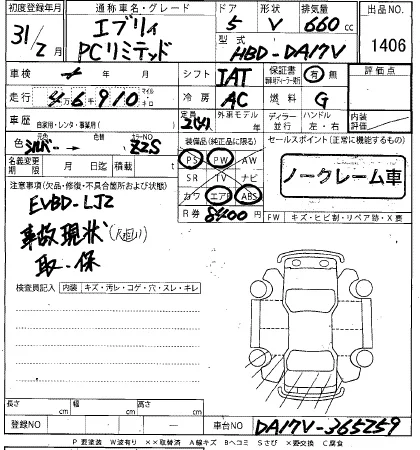 初度登録年月 通称車名・グレード ドア 形状 排気量 出品NO
31/2月 エブリィ PCリミテッド 5 V 660cc 1406
型式 HBD-DA17V
車検 年 月 シフト IAT 保証書 有 無 評価点
走行 4万6千910 マイル キロ 冷房 AC 燃料 G
車歴 自家用・レンタ・事業用( ) 定員 外車モデル 年 ディーラー 並行 ハンドル 左・右 内装評価
色 元色 シルバー → カラーNO Z2S 装備品(純正品に限る) セールスポイント(正常に機能するもの)
名義変更期限 月 日迄 積載 t PS PW AW
SR TV ナビ
カワ エアB ABS
ノークレーム車
注意事項(欠品・修復・不具合箇所および状態)
EVBD-LJ2
事故現状
取・保
R券 8400円 FW キズ・ヒビ割・リペア跡・X要
検査員記入 内装 キズ・汚レ・コゲ・穴・スレ・キレ
長さ cm 幅 cm 高さ cm
登録NO 車台NO DA17V-365259
P 要塗装 W波有り ××取替済 A線キズ Bヘコミ Sさび ×要交換 C腐食